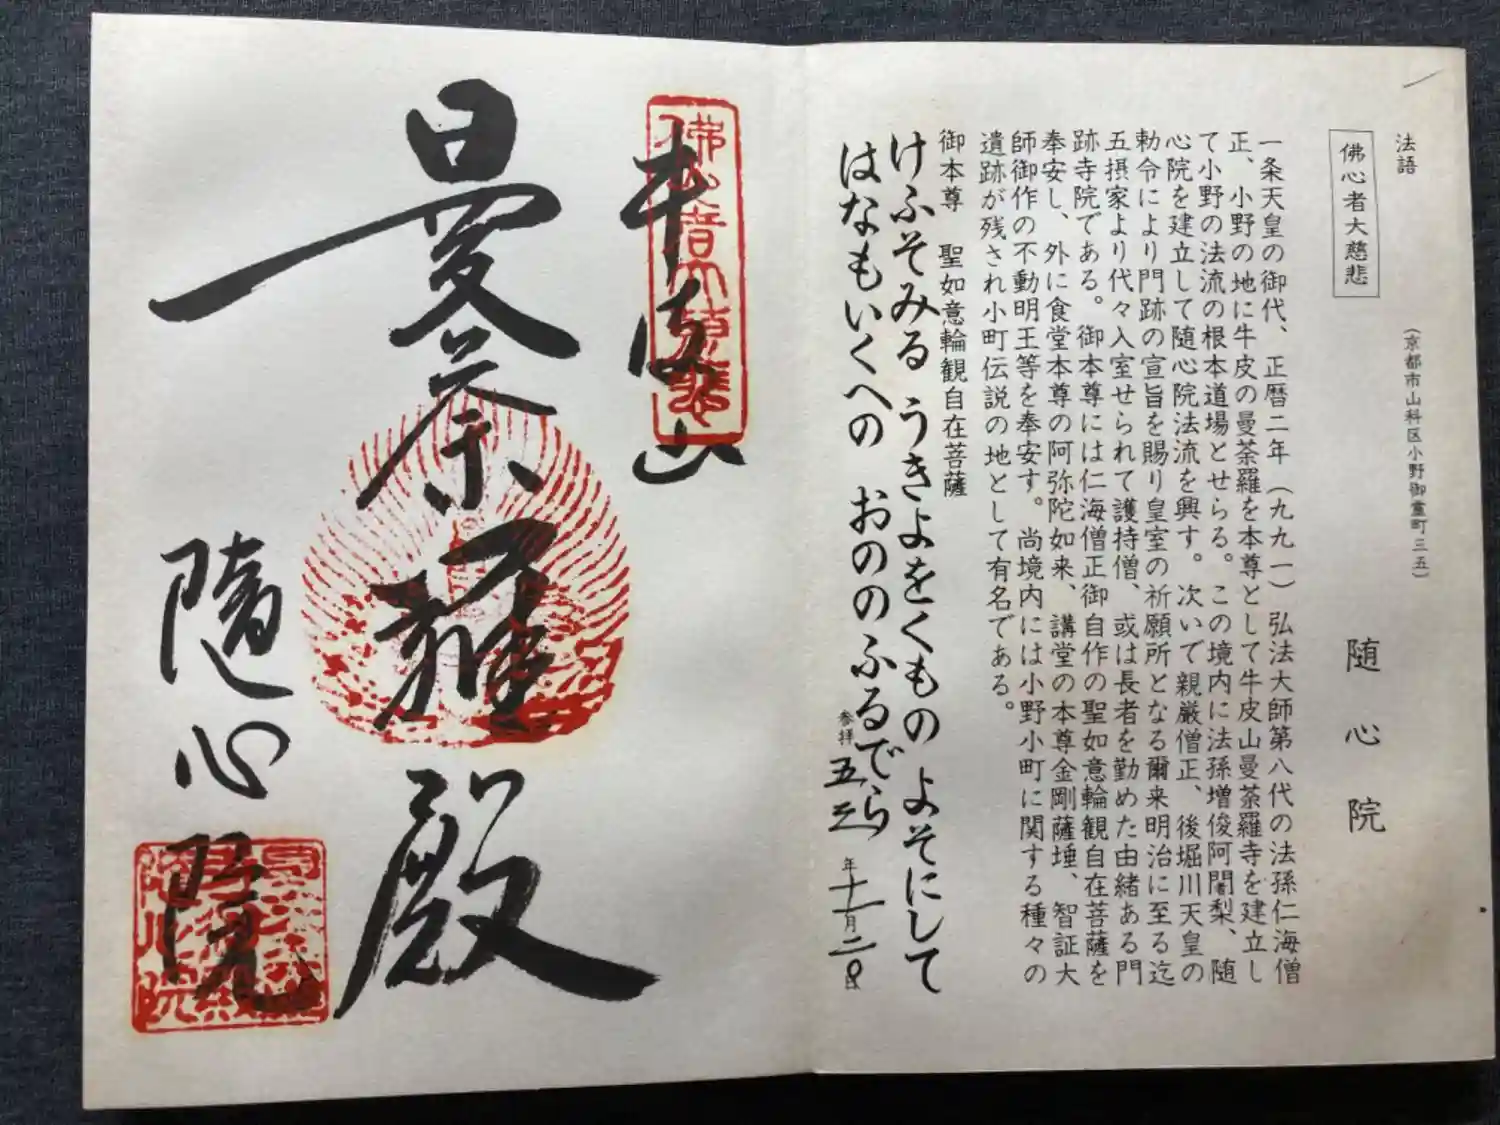 法語
佛心者大慈悲
(京都市山科区小野御霊町三五)
随心院
一条天皇の御代、正暦二年(九九一)弘法大師第八代の法孫仁海僧
正、小野の地に牛皮の曼荼羅を本尊として牛皮山曼荼羅寺を建立し
て小野の法流の根本道場とせらる。この境内に法孫増俊阿闍梨、随
心院を建立して随心院法流を興す。次いで親厳僧正、後堀川天皇の
勅令により門跡の宣旨を賜り皇室の祈願所となる爾来明治に至る迄
五摂家より代々入室せられて護持僧、或は長者を勤めた由緒ある門
跡寺院である。御本尊には仁海僧正御自作の聖如意輪観自在菩薩を
奉安し、外に食堂本尊の阿弥陀如来、講堂の本尊金剛薩埵、智証大
師御作の不動明王等を奉安す。尚境内には小野小町に関する種々の
遺跡が残され小町伝説の地として有名である。
御本尊 聖如意輪観自在菩薩
けふそみる うきよをくもの よそにして
はなもいくへの おののふるでら
参拝 五三年十一月二日
佛心者大慈悲
牛皮山
曼荼羅殿
随心院